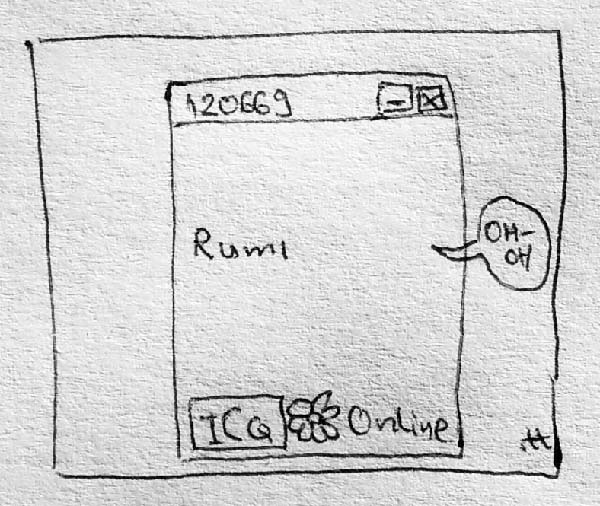 120669
Rumi
OH-
OH
ICQ Online